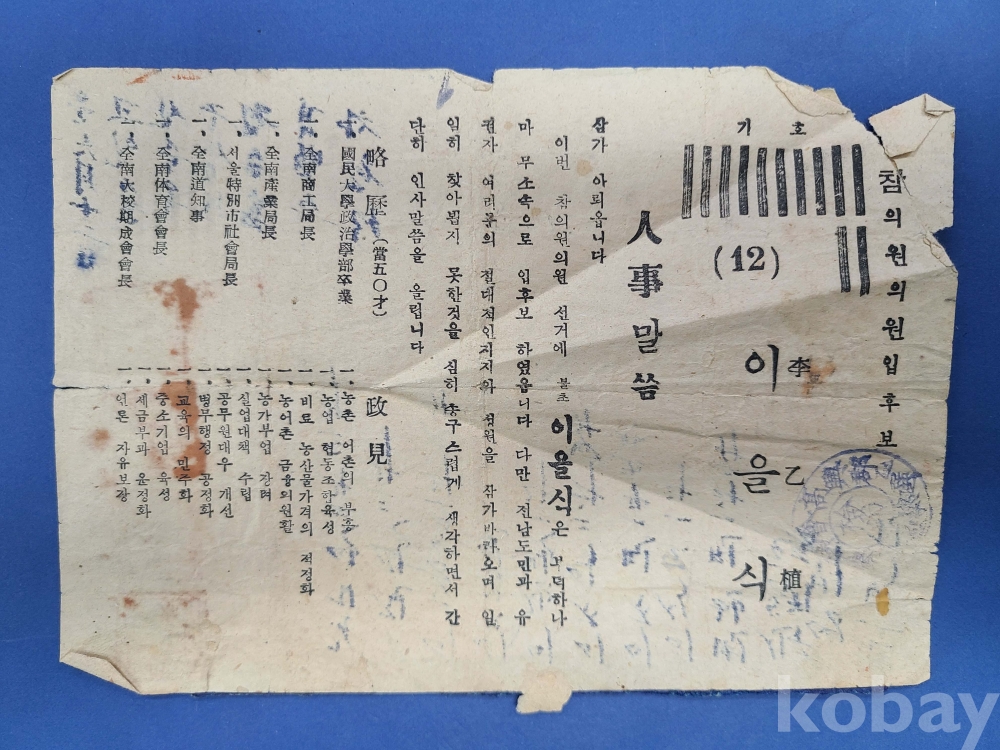 참의원의원입후보
기호
(12)
이을식
李乙植
人事말씀
삼가 아뢰옵니다
이번 참의원의원 선거에 불초 이을식은 부덕하나
마 무소속으로 입후보 하였읍니다 다만 전남도민과 유
권자 여러분의 절대적인지지와 성원을 삼가바라오며 일
일히 찾아뵙지 못한것을 심히 송구스럽게 생각하면서 간
단히 인사말씀을 올립니다
略歷 (當五○才)
一、國民大學政治學部卒業
一、全南商工局長
一、全南產業局長
一、서울特別市社會局長
一、全南道知事
一、全南体育會會長
一、全南大校期成會會長
政見
一、농촌 어촌의 부흥
一、농업 협동조합육성
一、비료 농산물가격의 적정화
一、농어촌 금융의원활
一、농가부업 장려
一、실업대책 수립
一、공무원대우 개선
一、병무행정 공정화
一、교육의 민주화
一、중소기업 육성
一、세금부과 윤정화
一、언론 자유보장
kobay